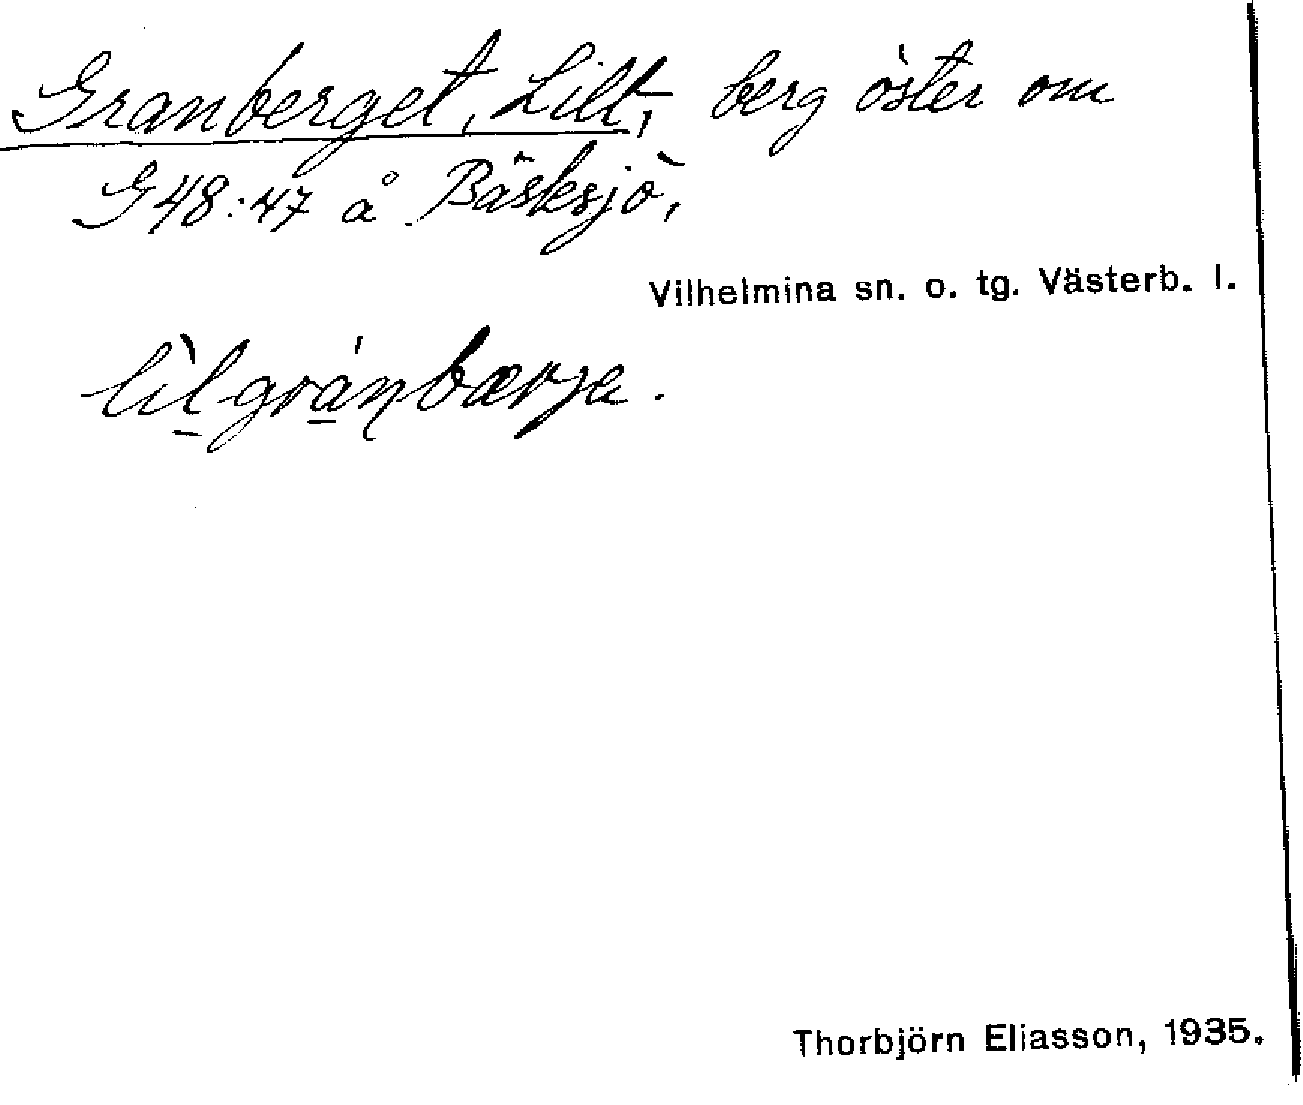 Granberget, Lill-, berg öster om
G48:47 å Bäsksjö,
Vilhelmina sn. o. tg. Västerb. l.
lìl gránbærje.
Thorbjörn Eliasson, 1935.